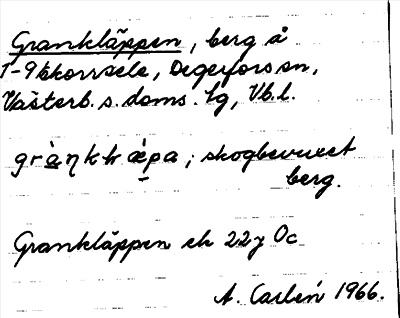 Grankläppen, berg å
T-9 Ekorrsele, Degerfors sn,
Västerb. s. doms. lg, Vb. l.
gràŋkḷæ̀pa; skogbevuxet
berg.
Grankläppen ek 22 j 0 c
A. Carlén 1966.